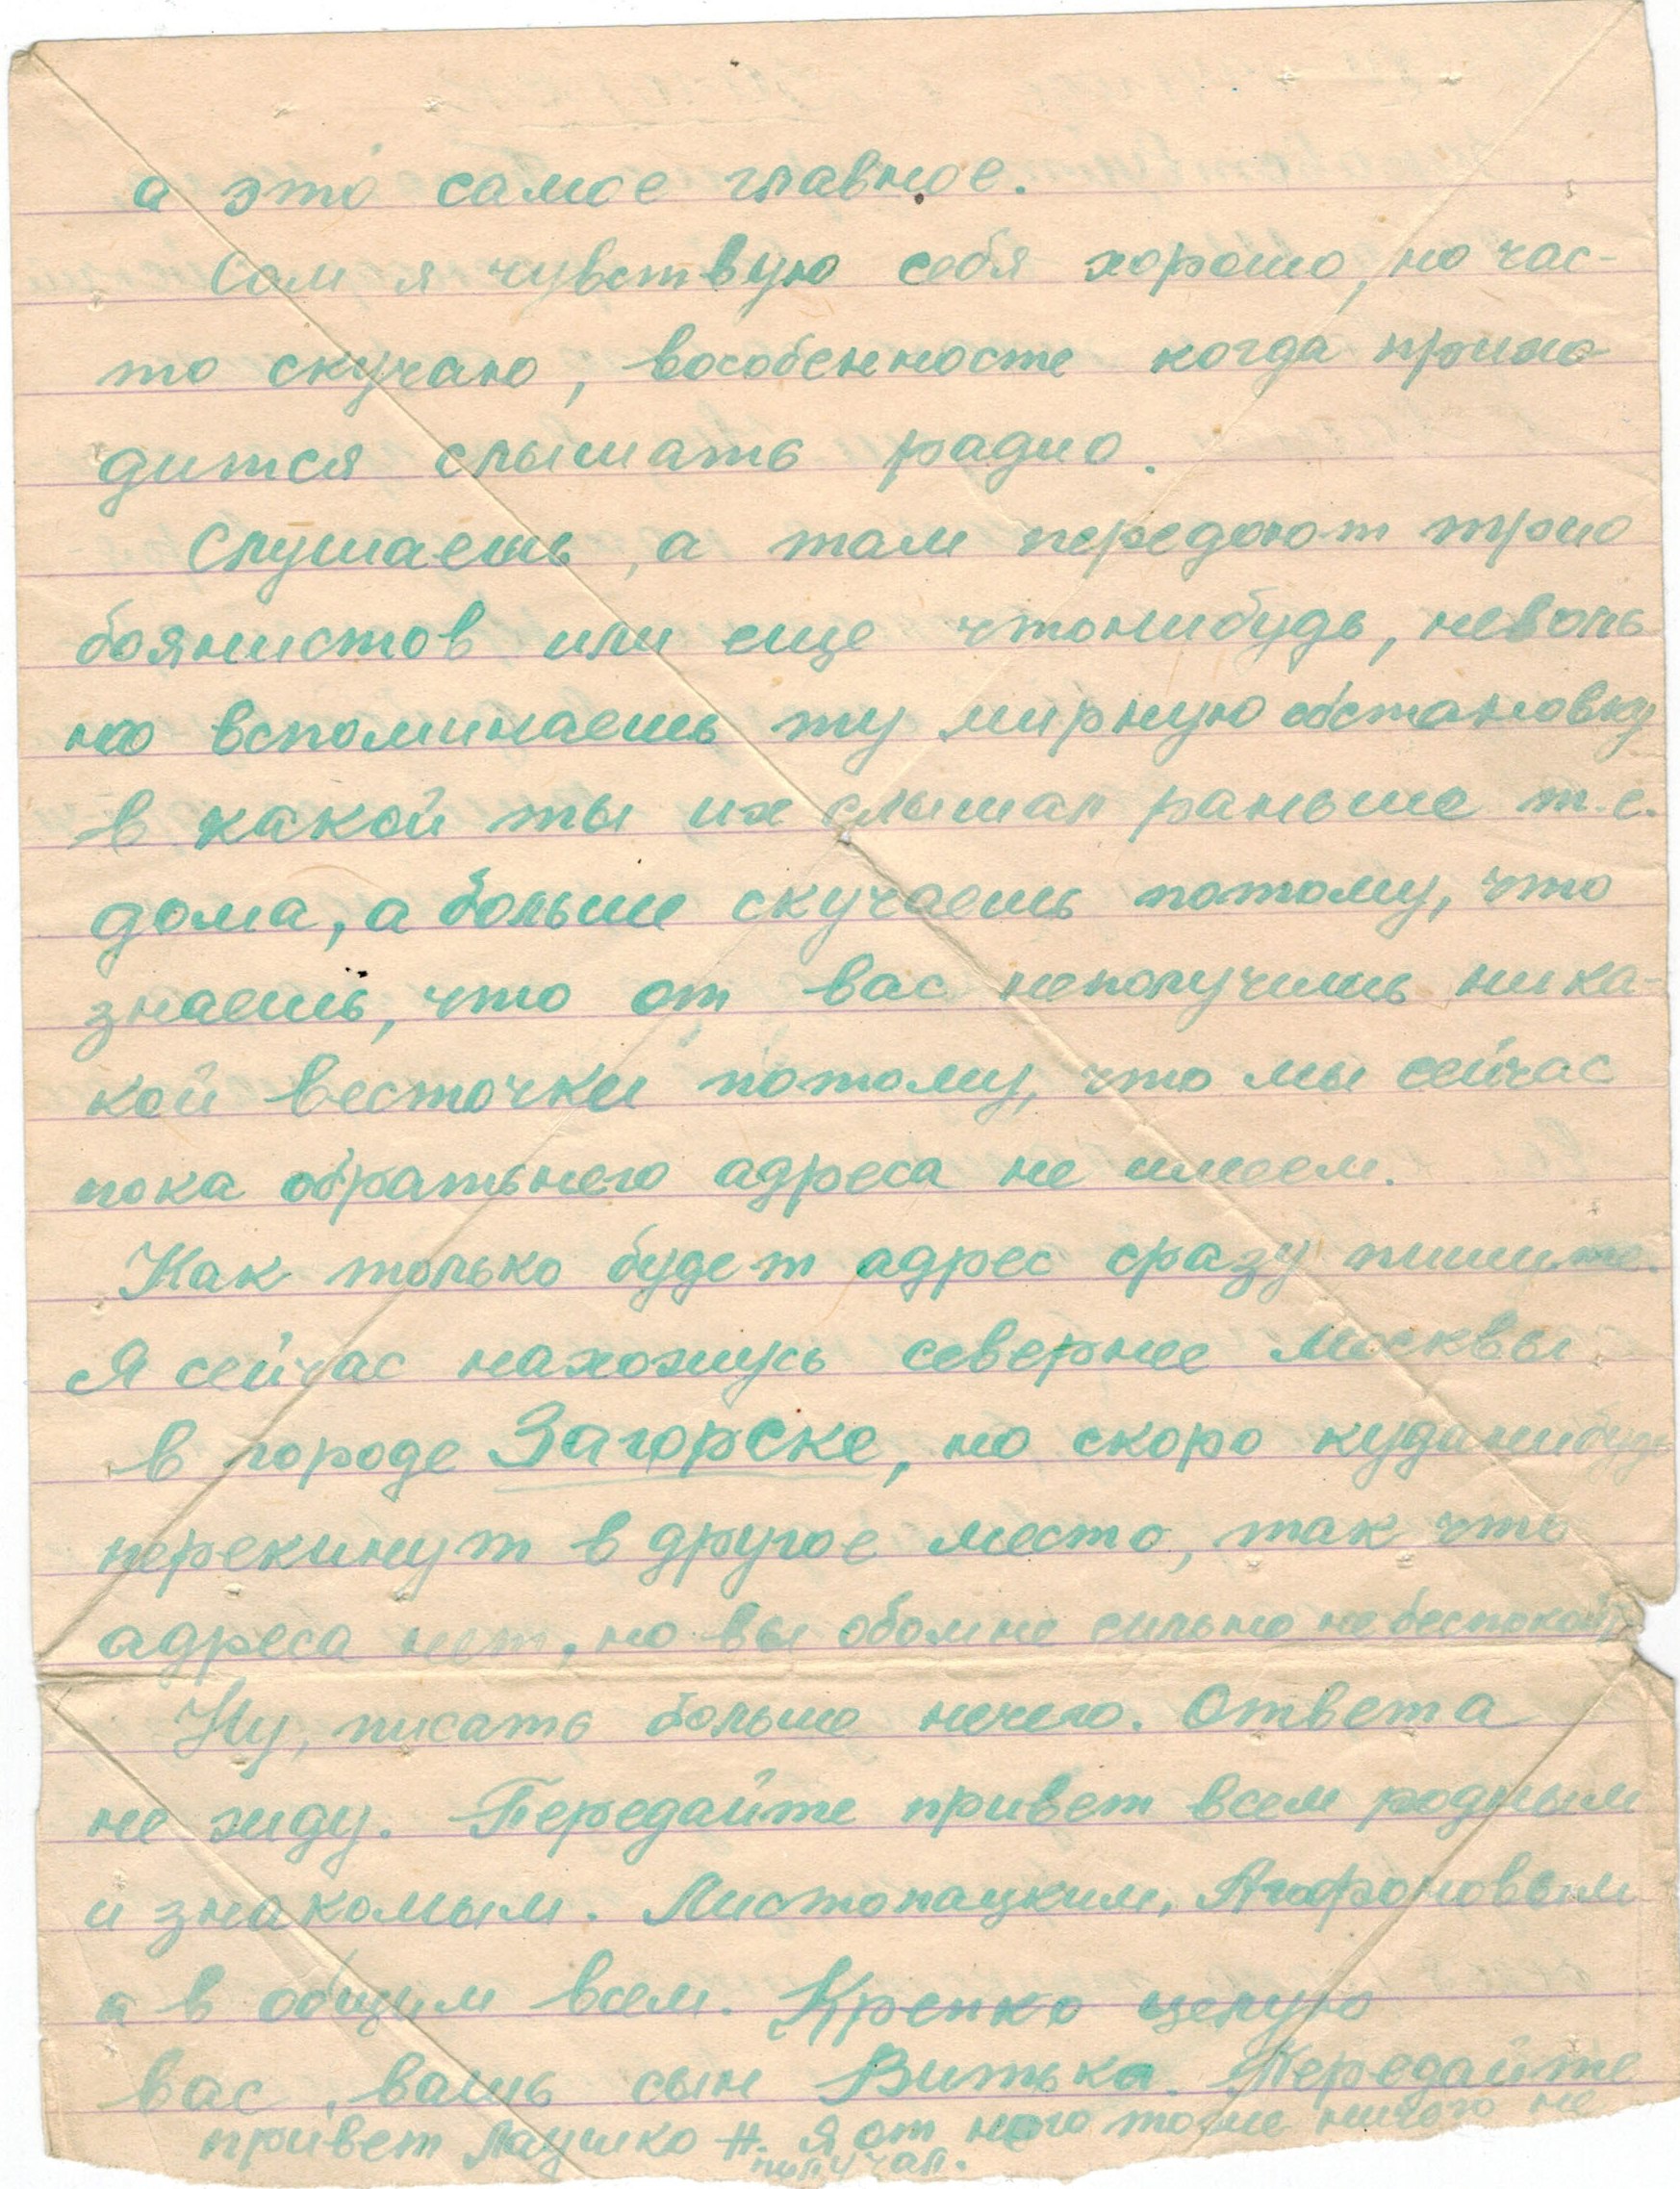 а это самое главное.
Сам я чувствую себя хорошо, но час-
то скучаю, вособенносте когда прихо-
дится слышать радио.
Слушаешь, а там передают трио
боянистов или еще чтонибудь, неволь
но вспоминаешь ту мирную обстановку
в какой ты их слышал раньше т.е.
дома, а больше скучаешь потому, что
знаешь, что от вас неполучишь ника-
кой весточки потому, что мы сейчас
пока обратьнего адреса не имеем.
Как только будет адрес сразу пишите.
Я сейчас нахожусь севернее Москвы
в городе Загорске, но скоро куданибудь
перекинут в другое место, так что
адреса нет, но вы обомне сильно не беспокойте
Ну, писать больше нечего. Ответа
не жиду. Передайте привет всем родным
и знакомым. Листопацким, Агафоновым
а в общим всем. Крепко целую
вас, вашь сын Витька. Передайте
привет Лаушко Н. Я от него тоже ничего не
получал.